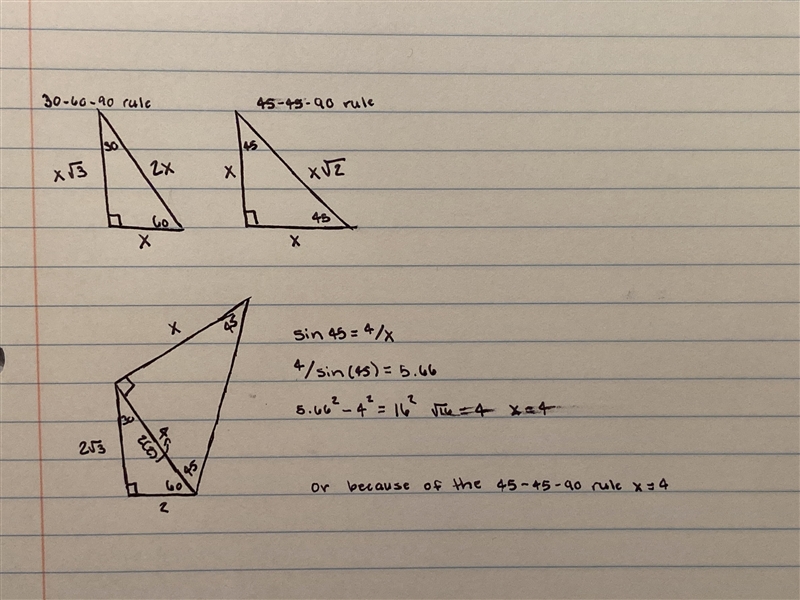 30-60-90 rule
45-45-90 rule
30
x√3
2x
60
x
45
x
x√2
45
x
x
45
30
2√3
4
2(2)
45
60
2
sin 45 = 4/x
4/sin(45) = 5.66
5.66² - 4² = 16² √16 = 4 x = 4
Or because of the 45-45-90 rule x = 4